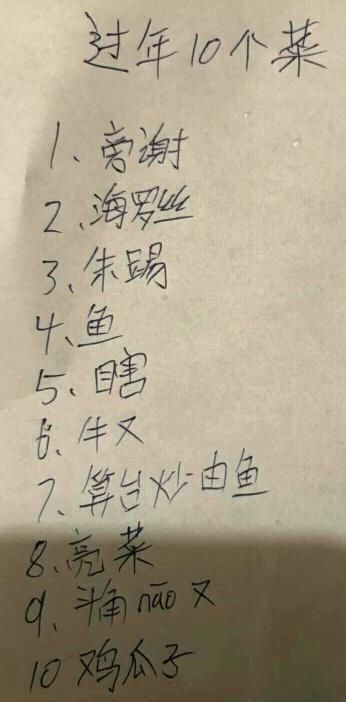 过年10个菜
1、旁谢
2、海罗丝
3、朱踢
4、鱼
5、瞎
6、牛又
7、算台炒由鱼
8、亮菜
9、羊角 não 又
10 鸡瓜子